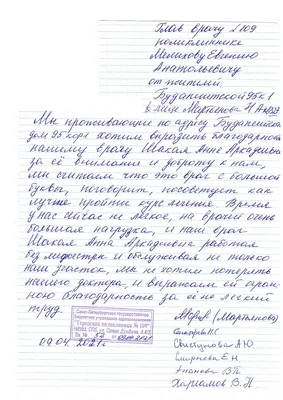 Глав врачу №109
поликлиннике
Мелихову Евгению
Анатольевичу
от жителей
Будапештской 95 к 1
в лице Мартьянова
Мы проживающие по адресу Будапештская
дом 95 кор1 хотим выразить благодарность
нашему врачу Шакая Анне Аркадьевне
за её внимания и доброту к нам,
мы считаем что это врач с большой
буквы, поговорит, посоветует как
лучше пройти курс лечения. Время
у нас сейчас не лёгкое, на врачей очень
большая нагрузка, и наш врач
Шакая Анна Аркадьевна работая
без медсестры и обслуживая не только
наш участок, мы не хотим потерять
нашего доктора, и выражаем ей огром-
ною благодарность за её не легкий
труд.
Санкт-Петербургское государственное
бюджетное учреждение здравоохранения
"Городская поликлиника № 109"
09.04.2021г.
(Мартьянова)
Свистунова А.Ю.
Смирнева Е.Н.
Харламов В.Н